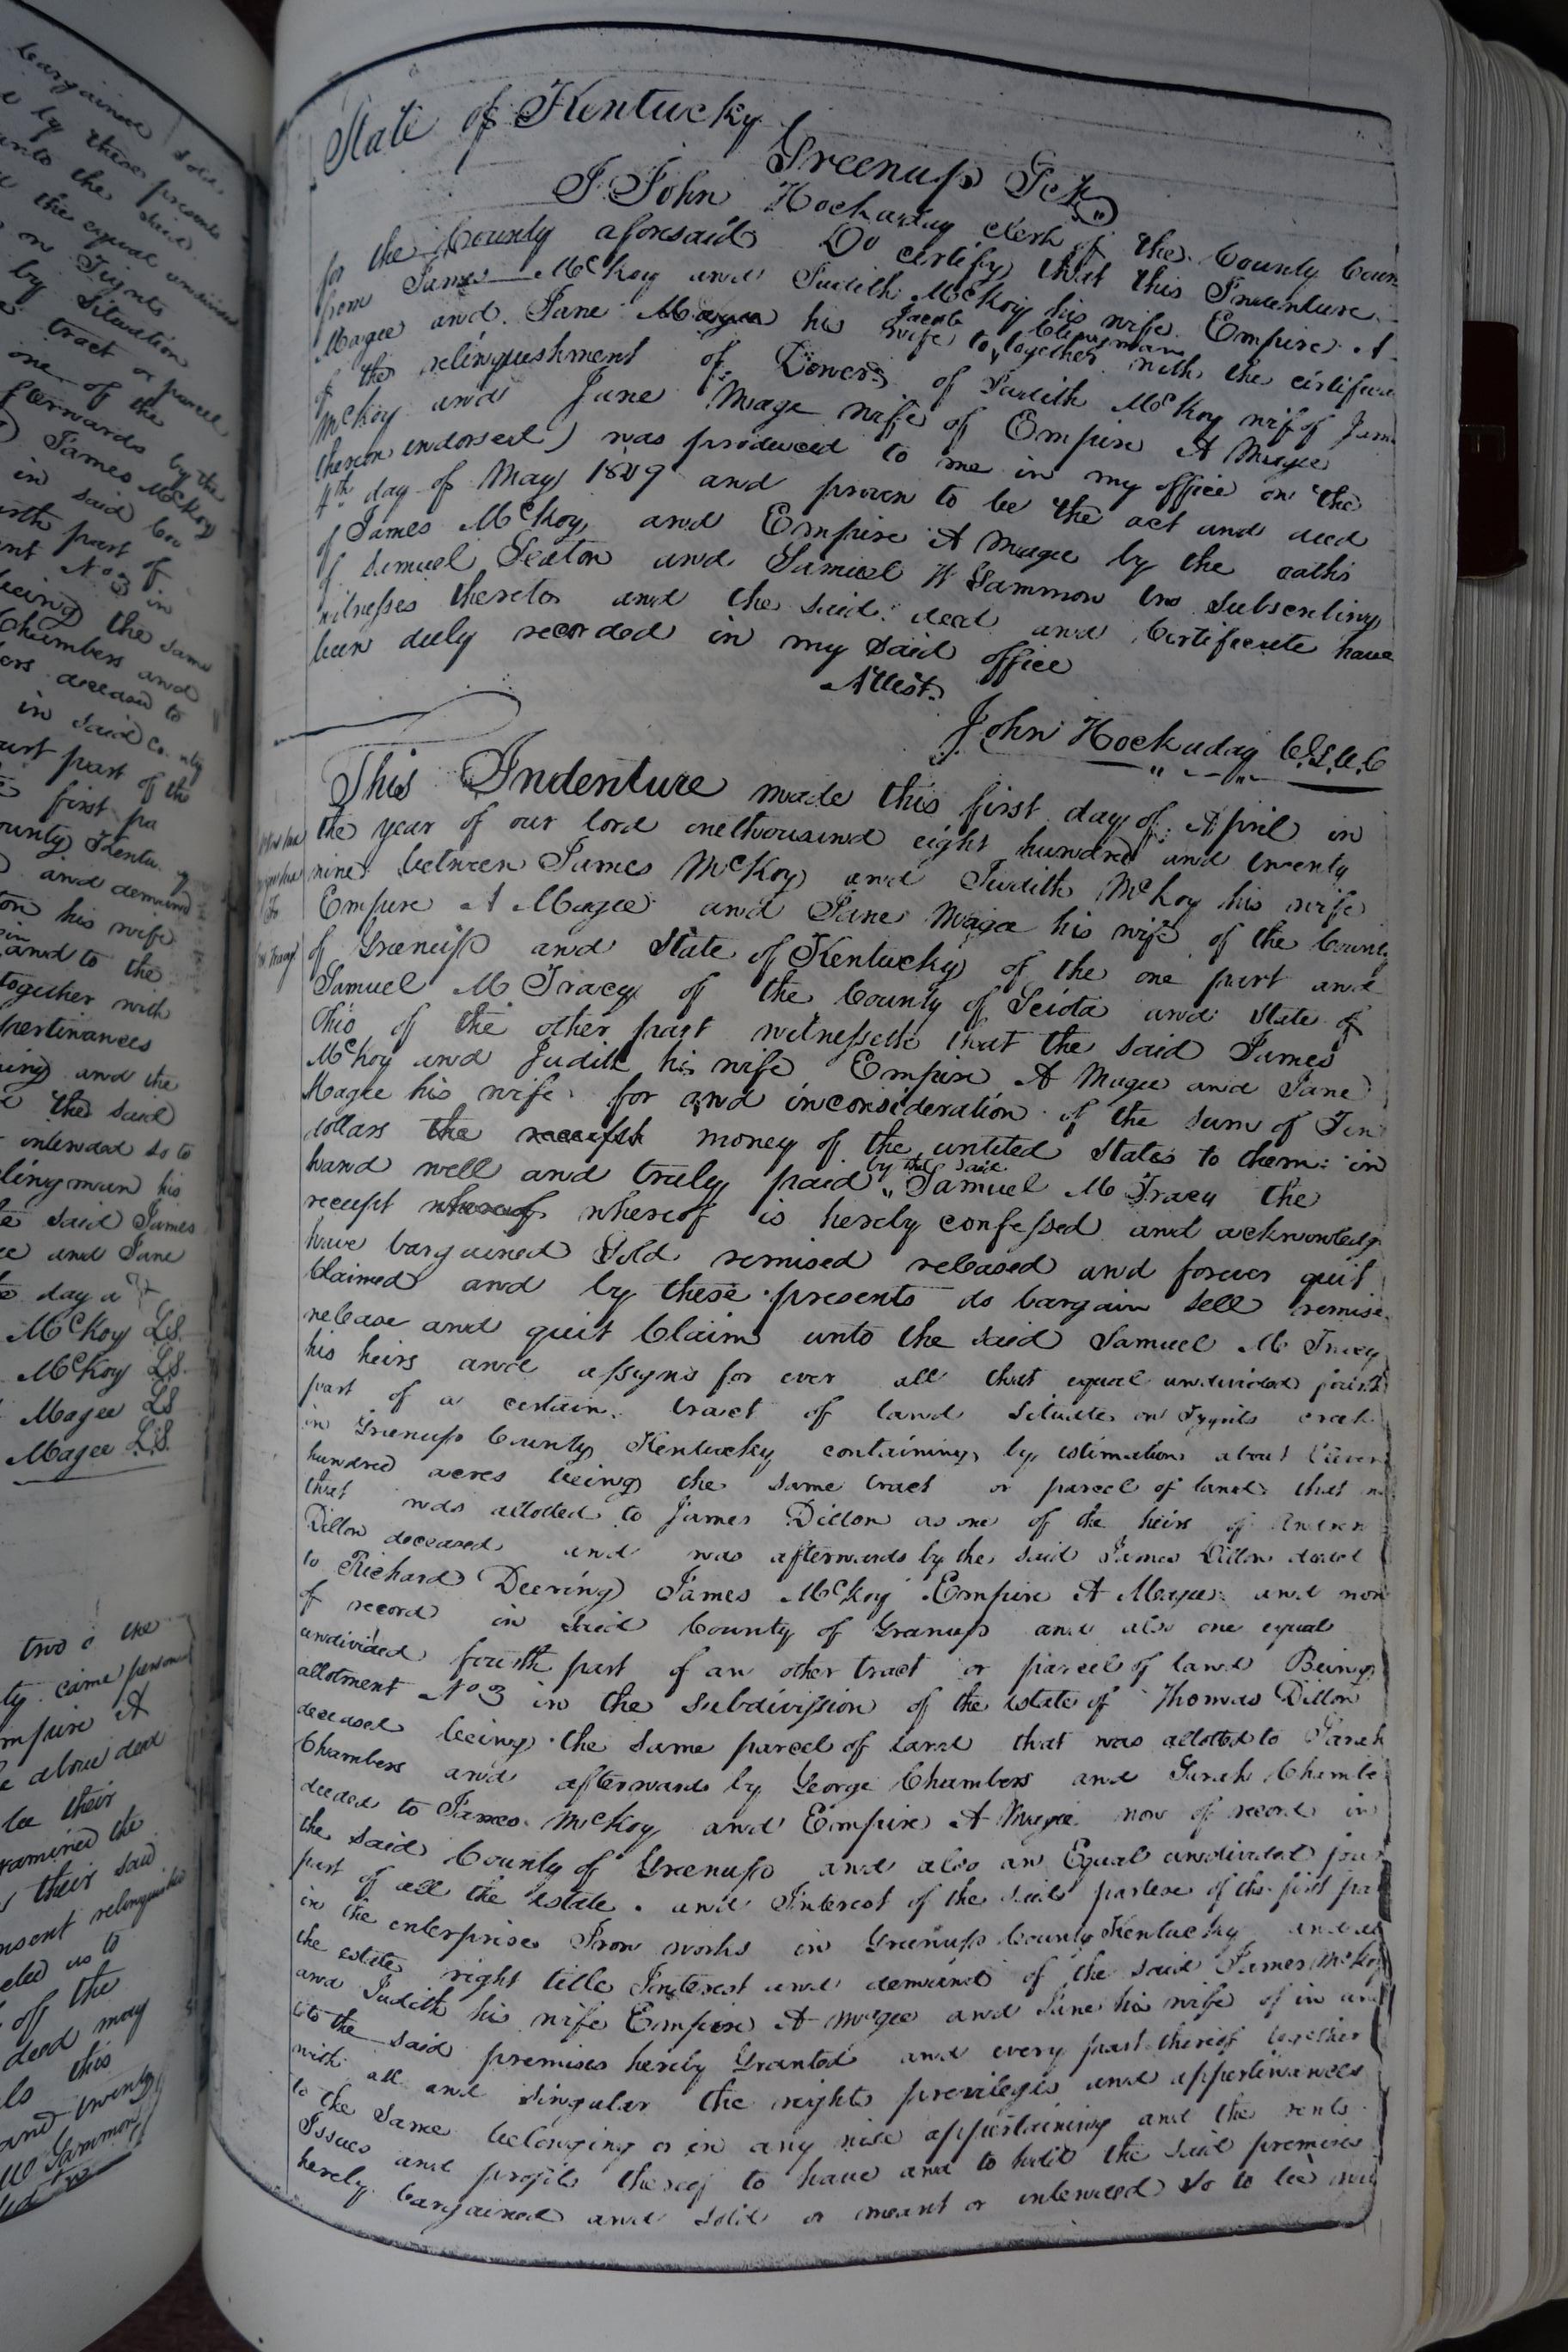 bargained sold
by these presents
unto the said
the equal undivided
on Tygnts
by Situation
tract or parcel
one of the
forwards by the
James McKoy
in said Cou
part of
No 3 in
being the same
Chambers and
deceased to
in said County
part of the
first pa
ounty Kentu
and demand
his wife
and to the
together with
pertinances
and the
the said
intended so to
lingman his
said James
and Jane
day a
McKoy LS.
McKoy LS.
Magee LS
Magee LS.
two
ty came person
mpire A
above deed
be their
xamined the
their said
nsent relinquished
us to
of the
deed may
this
and twenty
W Gammon
State of Kentucky
Greenup Sct
I John Hockaday clerk of the County Cour
for the County aforesaid Do certify that this Indenture
from James McKoy and Judith McKoy his wife Empire A
Jacob Clingman
Magee and Jane Magee his wife to together with the certifica
of the relinquishment of Dower of Judith McKoy wife of Jam
McKoy and Jane Mage wife of Empire A Magee
thereon endorsed) was produced to me in my office on the
4th day of May 1829 and proven to be the act and deed
of James McKoy and Empire A Magee by the oaths
of Samuel Seaton and Samuel W Gammon two subscribing
witnesses thereto and the said deed and Certificate have
been duly recorded in my said office
Attest
John Hockaday C.G.C.C
This Indenture made this first day of April in
the year of our lord onethousand eight hundred and twenty
nine between James McKoy and Judith McKoy his wife
Empire A Magee and Jane Magee his wife of the County
of Greenup and State of Kentucky of the one part and
Samuel M Tracy of the County of Sciota and State of
Ohio of the other part witnesseth that the said James
McKoy and Judith his wife Empire A Magee and Jane
Magee his wife for and inconsideration of the sum of Ten
dollars the receipt money of the untited States to them in
hand well and truly paid by the said Samuel M Tracy the
receipt whereof whereof is hereby confessed and acknowledg
have bargained Sold remised released and forever quit
Claimed and by these presents do bargain sell remise
release and quit Claim unto the said Samuel M Tracy
his heirs and assigns for ever all that equal undivided fourth
part of a certain tract of land situate on Tygnts creek
in Greenup County Kentucky containing by estimation about
hundred acres being the same tract or parcel of land that
that was allotted to James Dillon as one of the heirs of
Dillon deceased and was afterwards by the said James Dillon deed
to Richard Deering James McKoy Empire A Magee and now
of record in said County of Greenup and also one equal
undivided fourth part of an other tract or parcel of land Being
allotment No 3 in the subdivision of the estate of Thomas Dillon
deceased being the same parcel of land that was allotted to Sarah
Chambers and afterwards by George Chambers and Sarah Chambe
deeded to James McKoy and Empire A Magee now of record in
the said County of Greenup and also an Equal undivided four
part of all the estate and Interest of the said parties of the first par
in the enterprise Iron works in Greenup County Kentucky and all
the estate right title Interest and demand of the said James McKoy
and Judith his wife Empire A Magee and Jane his wife of in and
to the said premises hereby Granted and every part thereof together
with all and singular the rights privileges and appertinances
to the same belonging or in any wise appertaining and the rents
Issues and profits thereof to have and to hold the said premises
hereby bargained and sold or meant or intended so to be